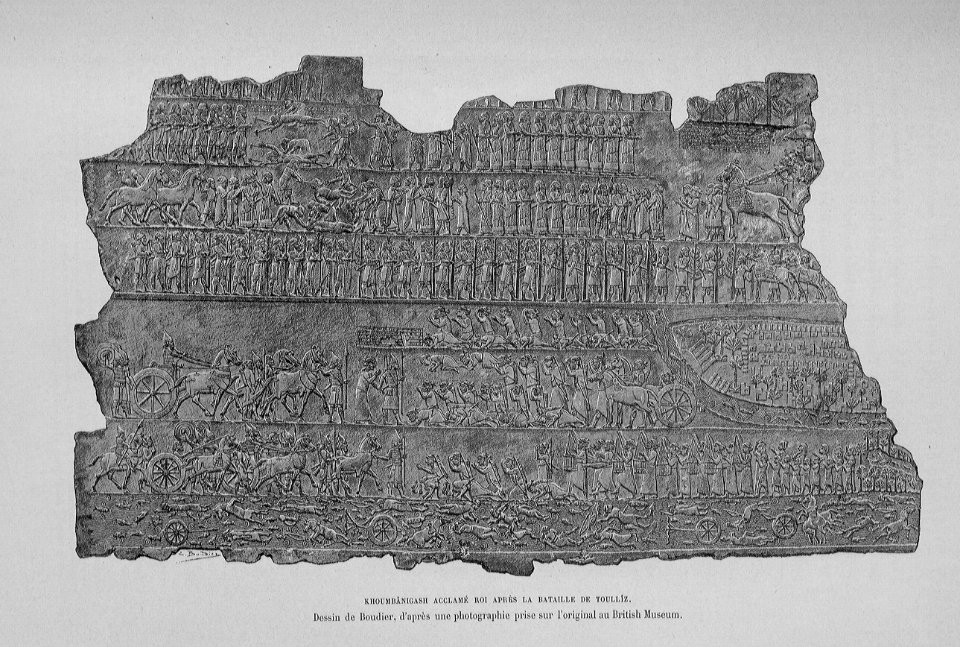 KHOUMBÂNIGASH ACCLAMÉ ROI APRÈS LA BATAILLE DE TOULLÎZ.
Dessin de Boudier, d'après une photographie prise sur l'original au British Museum.